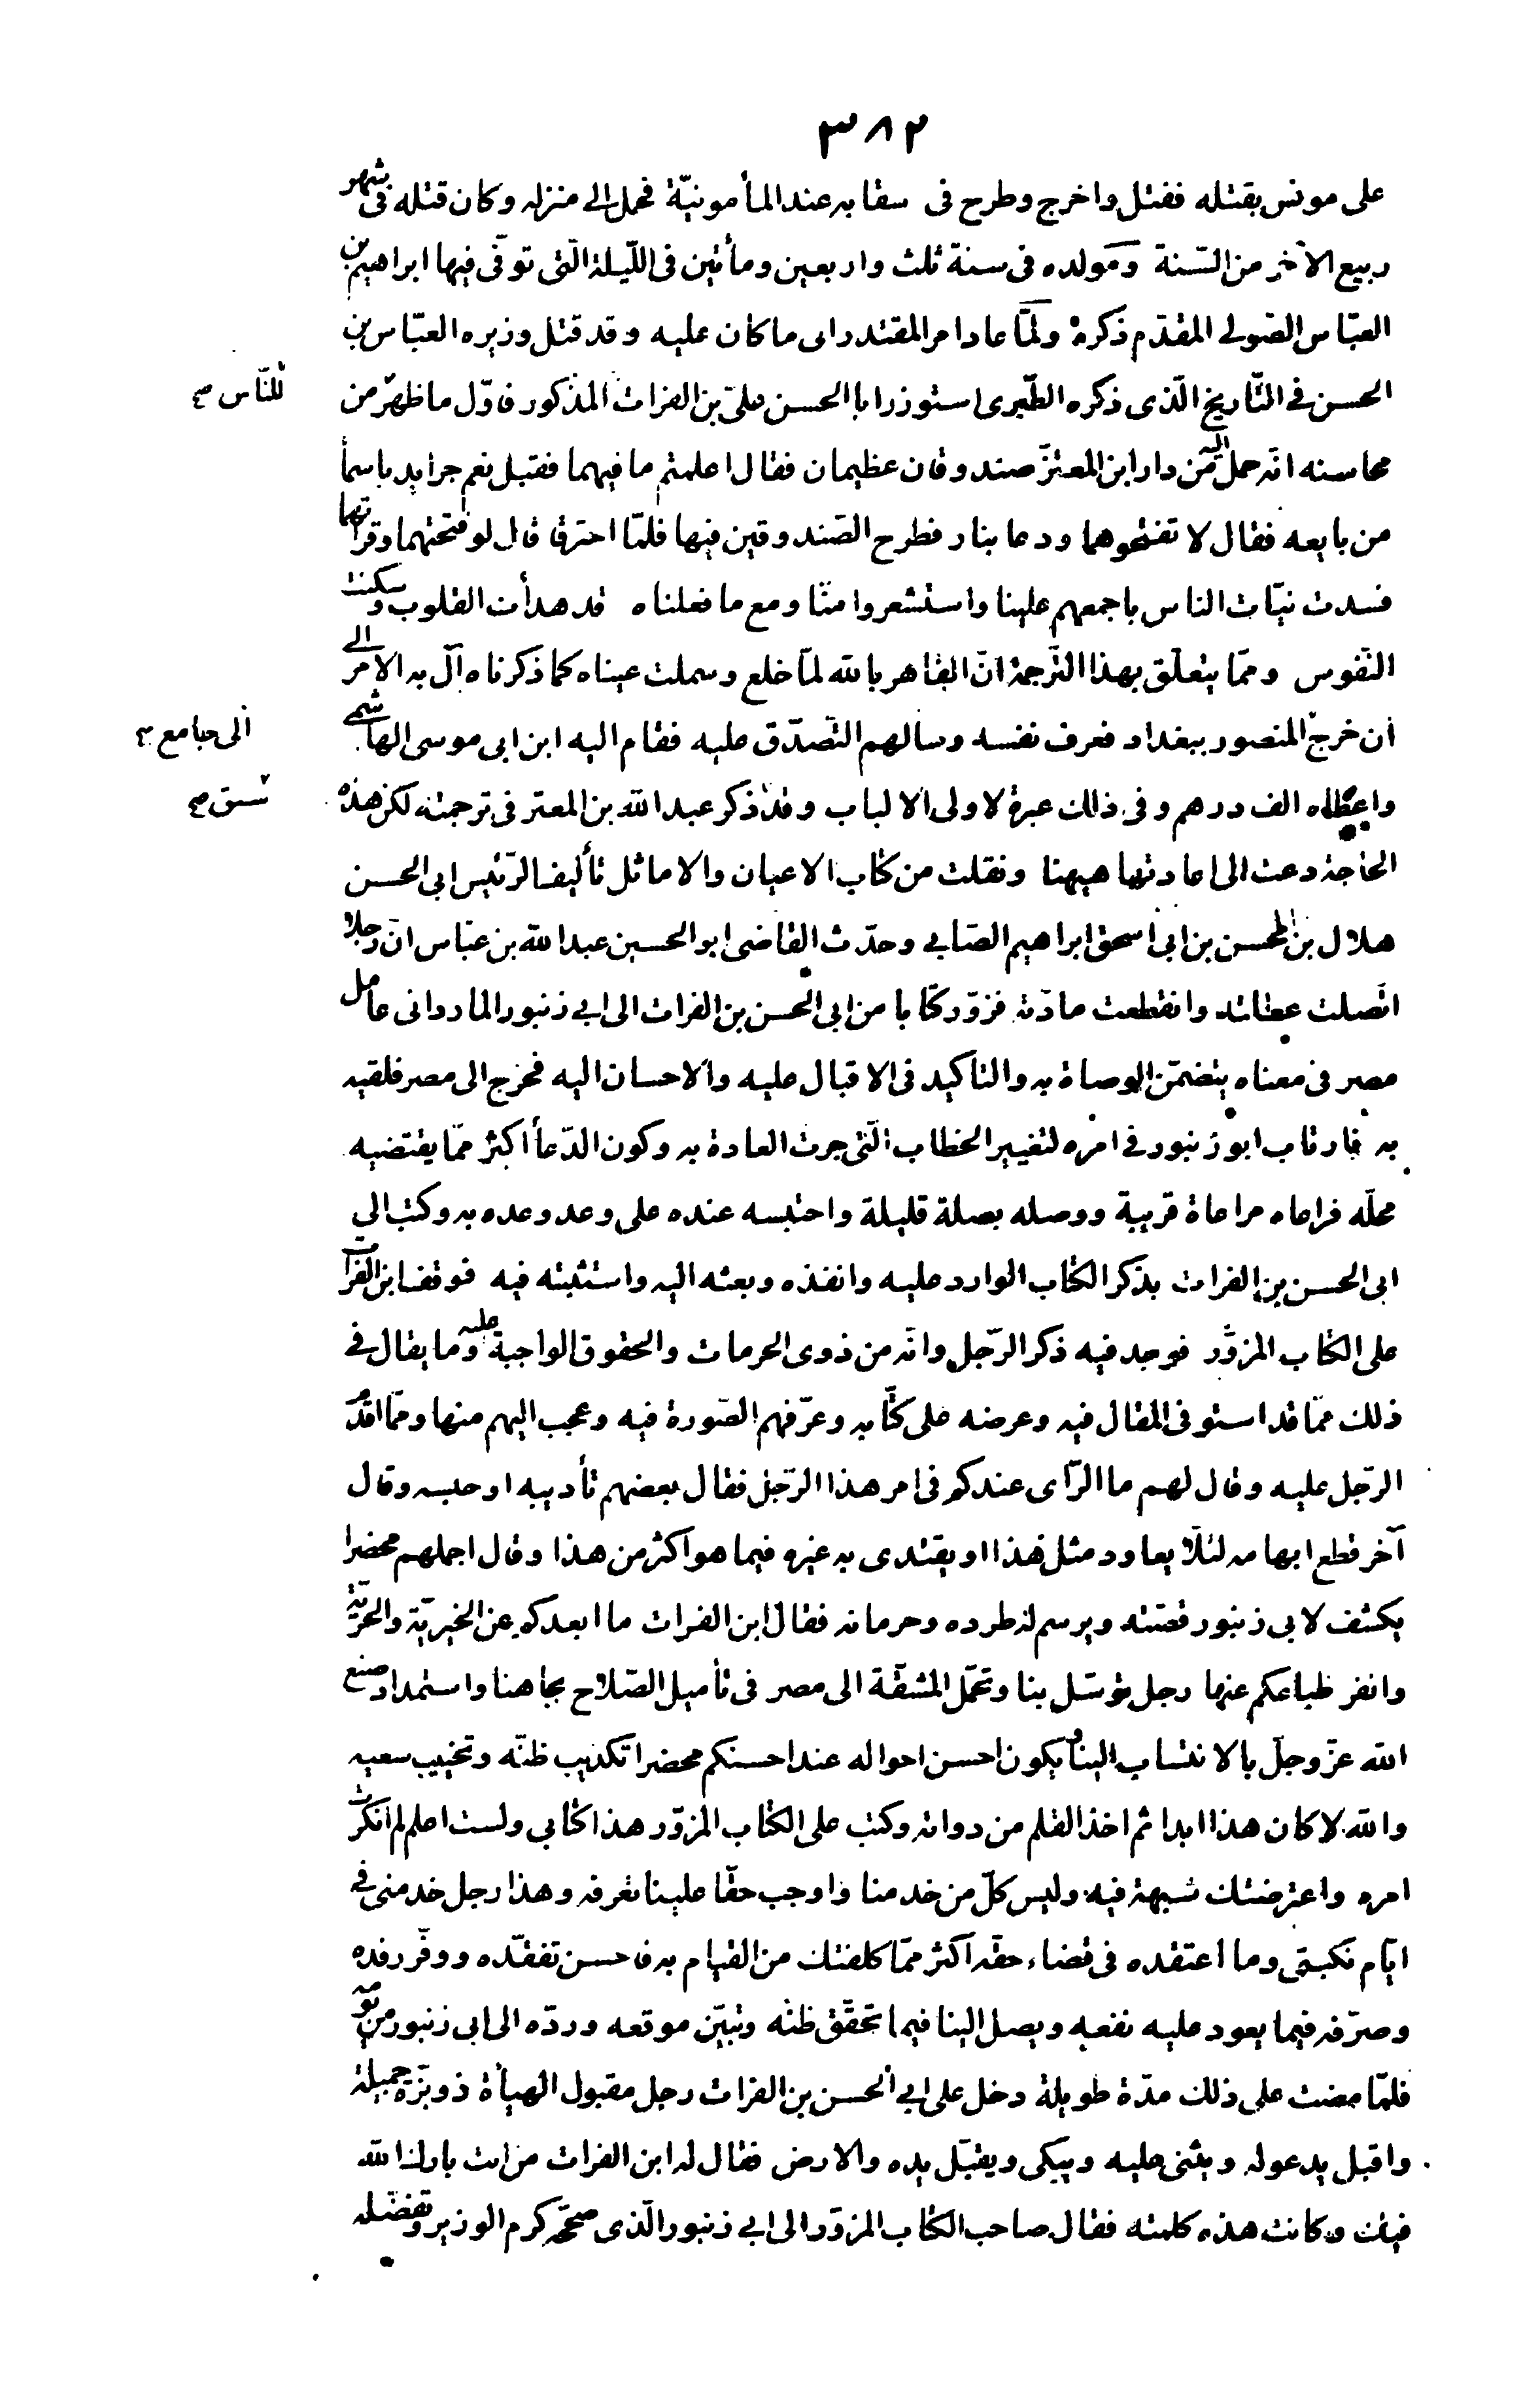 ٣٨٢
على مونس بقتله فقتل واخرج وطرح فى سقابه عند المأمونيّة فحمل الى منزله وكان قتله فى شهر
ربيع الآخر من السّنة ومولده فى سنة ثلث واربعين ومأتين فى اللّيلة الّتى توفّى فيها ابراهيم بن
العبّاس الصّولى المقدّم ذكره ولمّا عاد امر المقتدر الى ما كان عليه وقد قتل وزيره العبّاس بن
الحسن فى التّاريخ الّذى ذكره الطّبرى استوزر ابا الحسن علىّ بن الفرات المذكور فاوّل ما ظهر من
للنّاس صح
محاسنه انّه حمل اليه من دار ابن المعتزّ صندوقان عظيمان فقال اعلمتم ما فيهما فقيل نعم جرايد باسمأ
من بايعه فقال لا تفتحوهما ودعا بنار فطرح الصّندوقين فيها فلمّا احترقا قال لو فتحتهما وقراتهما
فسدت نيّات الناس باجمعهم علينا واستشعروا منّا ومع ما فعلناه قد هدأت القلوب وسكنت
النّفوس وممّا يتعلّق بهذا التّرجمة انّ القاهر بالله لمّا خلع وسملت عيناه كما ذكرناه آل به الامر الى
ان خرج المنصور ببغداد فعرف نفسه وسالهم التّصدّق عليه فقام اليه ابن ابى موسى الهاشمى
الى جامع صح
واعطاه الف درهم وفى ذلك عبرة لاولى الالباب وقد ذكر عبد الله بن المعتز فى ترجمته لكن هذه
سبق صح
الحاجة دعت الى اعادتها هيهنا ونقلت من كتاب الاعيان والاماثل تأليف الرّئيس ابى الحسن
هلال بن المحسن بن ابى اسحق ابراهيم الصّابى وحدّث القاضى ابو الحسين عبد الله بن عبّاس انّ رجلا
اتّصلت عطلته وانقطعت مادّته فزوّر كتّابا من ابى الحسن بن الفرات الى ابى زنبور الماردانى عامل
مصر فى معناه يتضمّن الوصاة به والتاكيد فى الاقبال عليه والاحسان اليه فخرج الى مصر فلقيه
به فارتاب ابو زنبور فى امره لتغيير الخطاب الّتى جرت العادة به وكون الدّعأ اكثر ممّا يقتضيه
محلّه فراعاه مراعاة قريبة ووصله بصلة قليلة واحتبسه عنده على وعد وعده به وكتب الى
ابى الحسن بن الفرات يذكر الكتاب الوارد عليه وانفذه وبعثه اليه واستثبته فيه فوقف ابن الفرات
على الكتاب المزوّر فوجد فيه ذكر الرّجل وانّه من ذوى الحرمات والحقوق الواجبة عليه وما يقال فى
ذلك ممّا قد استوفى المقال فيه وعرضه على كتّابه وعرّفهم الصّورة فيه وعجب اليهم منها وممّا اقدم
الرّجل عليه وقال لهم ما الرّأى عندكم فى امر هذا الرّجل فقال بعضهم تأديبه او حبسه وقال
آخر قطع ابهامه لئلّا يعاود مثل هذا او يقتدى به غيره فيما هو اكثر من هذا وقال اجملهم محضرا
يكشف لابى زنبور قصّته ويرسم له طرده وحرمانه فقال ابن الفرات ما ابعدكم عن الخيريّة والحرّيّة
وانفر طباعكم عنها رجل توسّل بنا وتحمّل المشقّة الى مصر فى تأميل الصّلاح بجاهنا واستمداد صنع
الله عزّ وجلّ بالانتساب الينا ويكون احسن احواله عند احسنكم محضرا تكذيب ظنّه وتخييب سعيه
والله لا كان هذا ابدا ثم اخذ القلم من دواته وكتب على الكتاب المزوّر هذا كتابى ولست اعلم لم انكرت
امره واعترضتك شبهة فيه وليس كلّ من خدمنا واوجب حقّا علينا نعرفه وهذا رجل خدمنى فى
ايّام نكبتى وما اعتقده فى قضاء حقّه اكثر ممّا كلفتك من القيام به فاحسن تفقّده ووفّر رفده
وصرّفه فيما يعود عليه نفعه ويصل الينا فيما تحقّق ظنّه وتبيّن موقعه وردّه الى ابى زنبور من يومه
فلمّا مضت على ذلك مدّة طويلة دخل على ابى الحسن بن الفرات رجل مقبول الهيأة ذو بزّة جميلة
واقبل يدعو له ويثنى عليه ويبكى ويقبّل يده والارض فقال له ابن الفرات من انت بارك الله
فيك وكانت هذه كلمته فقال صاحب الكتاب المزوّر الى ابى زنبور الّذى صحّحه كرم الوزير وتفضّله